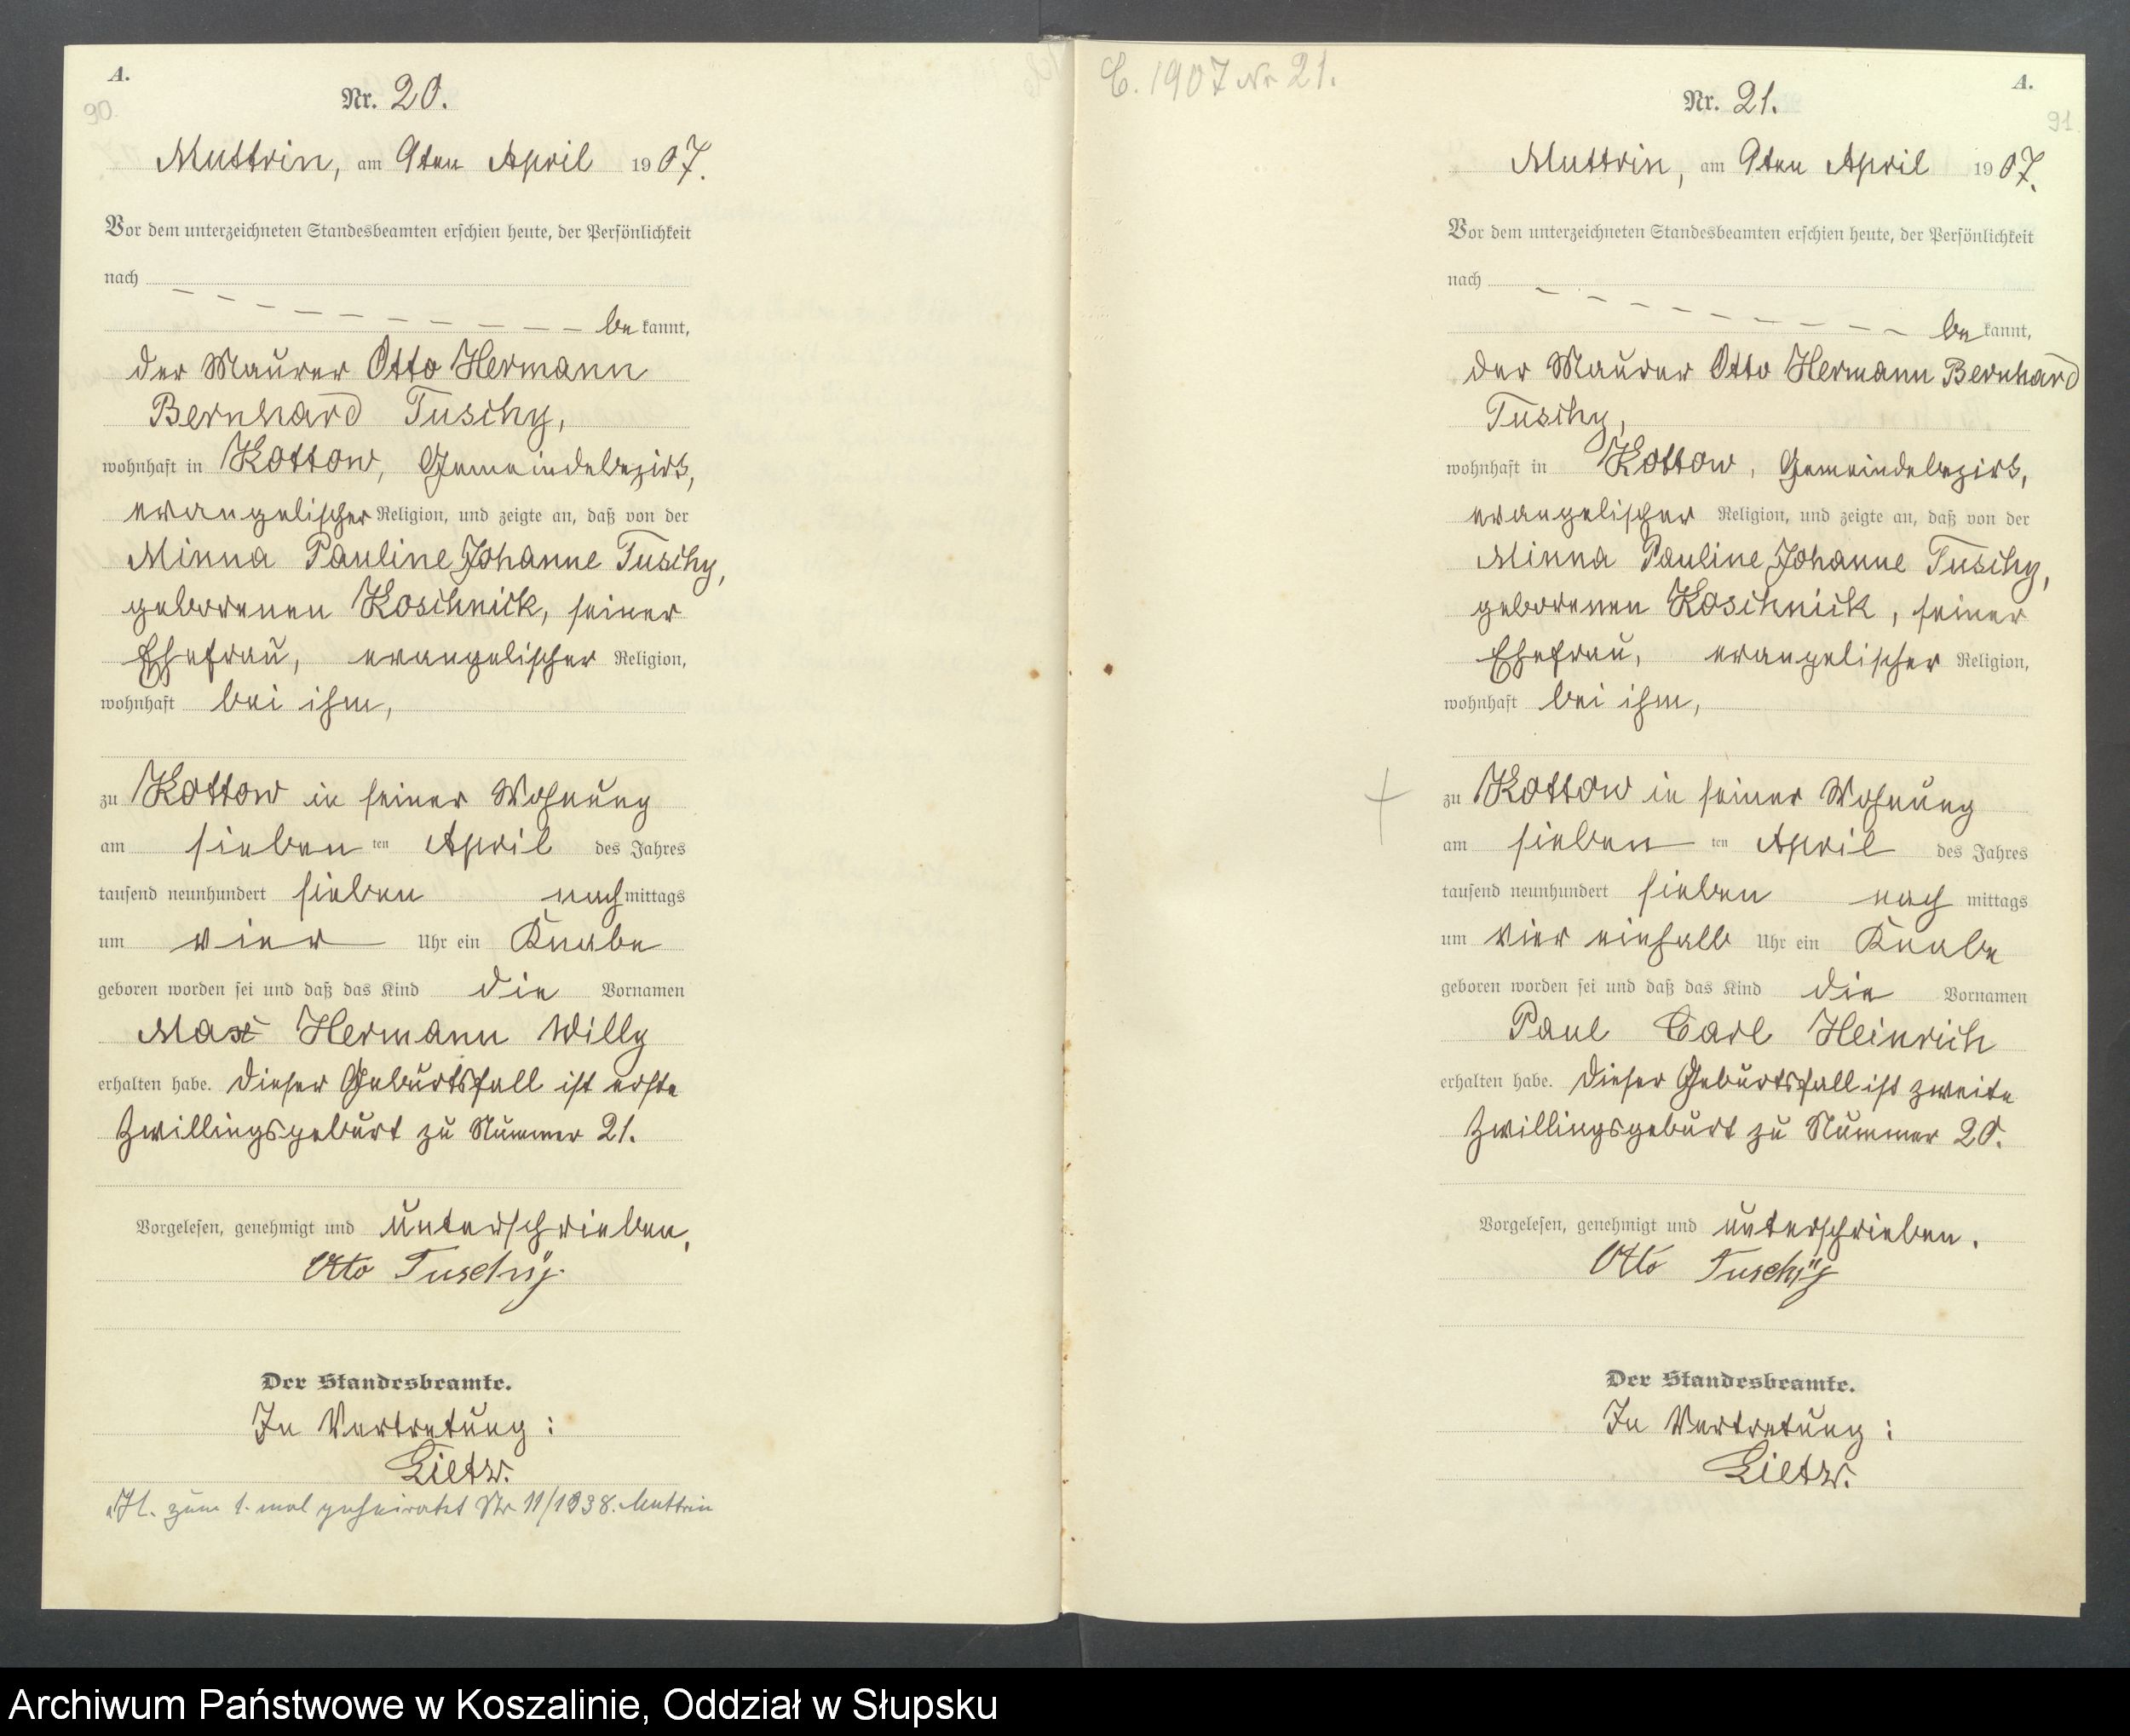 A.
90.
Nr. 20.
Muttrin, am 9ten April 1907.
Vor dem unterzeichneten Standesbeamten erschien heute, der Persönlichkeit
nach
be kannt,
der Maurer Otto Hermann
Bernhard Tuschy,
wohnhaft in Kottow, Gemeindebezirk,
evangelischer Religion, und zeigte an, daß von der
Minna Pauline Johanne Tuschy,
geborenen Koschnick, seiner
Ehefrau, evangelischer Religion,
wohnhaft bei ihm,
zu Kottow in seiner Wohnung
am sieben ten April des Jahres
tausend neunhundert sieben nach mittags
um vier Uhr ein Knabe
geboren worden sei und daß das Kind die Vornamen
Max Hermann Willy
erhalten habe. Dieser Geburtsfall ist erste
Zwillingsgeburt zu Nummer 21.
Vorgelesen, genehmigt und unterschrieben,
Otto Tuschÿ.
Der Standesbeamte.
In Vertretung:
Lietz.
H. zum 1. mal geheiratet Nr. 11/1938. Muttrin
C. 1907 Nr 21.
A.
91
Nr. 21.
Muttrin, am 9ten April 1907.
Vor dem unterzeichneten Standesbeamten erschien heute, der Persönlichkeit
nach
be kannt,
der Maurer Otto Hermann Bernhard
Tuschy,
wohnhaft in Kottow, Gemeindebezirk,
evangelischer Religion, und zeigte an, daß von der
Minna Pauline Johanne Tuschy,
geborenen Koschnick, seiner
Ehefrau, evangelischer Religion,
wohnhaft bei ihm,
zu Kottow in seiner Wohnung
am sieben ten April des Jahres
tausend neunhundert sieben nach mittags
um vier einhalb Uhr ein Knabe
geboren worden sei und daß das Kind die Vornamen
Paul Carl Heinrich
erhalten habe. Dieser Geburtsfall ist zweite
Zwillingsgeburt zu Nummer 20.
Vorgelesen, genehmigt und unterschrieben.
Otto Tuschÿ
Der Standesbeamte.
In Vertretung:
Lietz.
Archiwum Państwowe w Koszalinie, Oddział w Słupsku